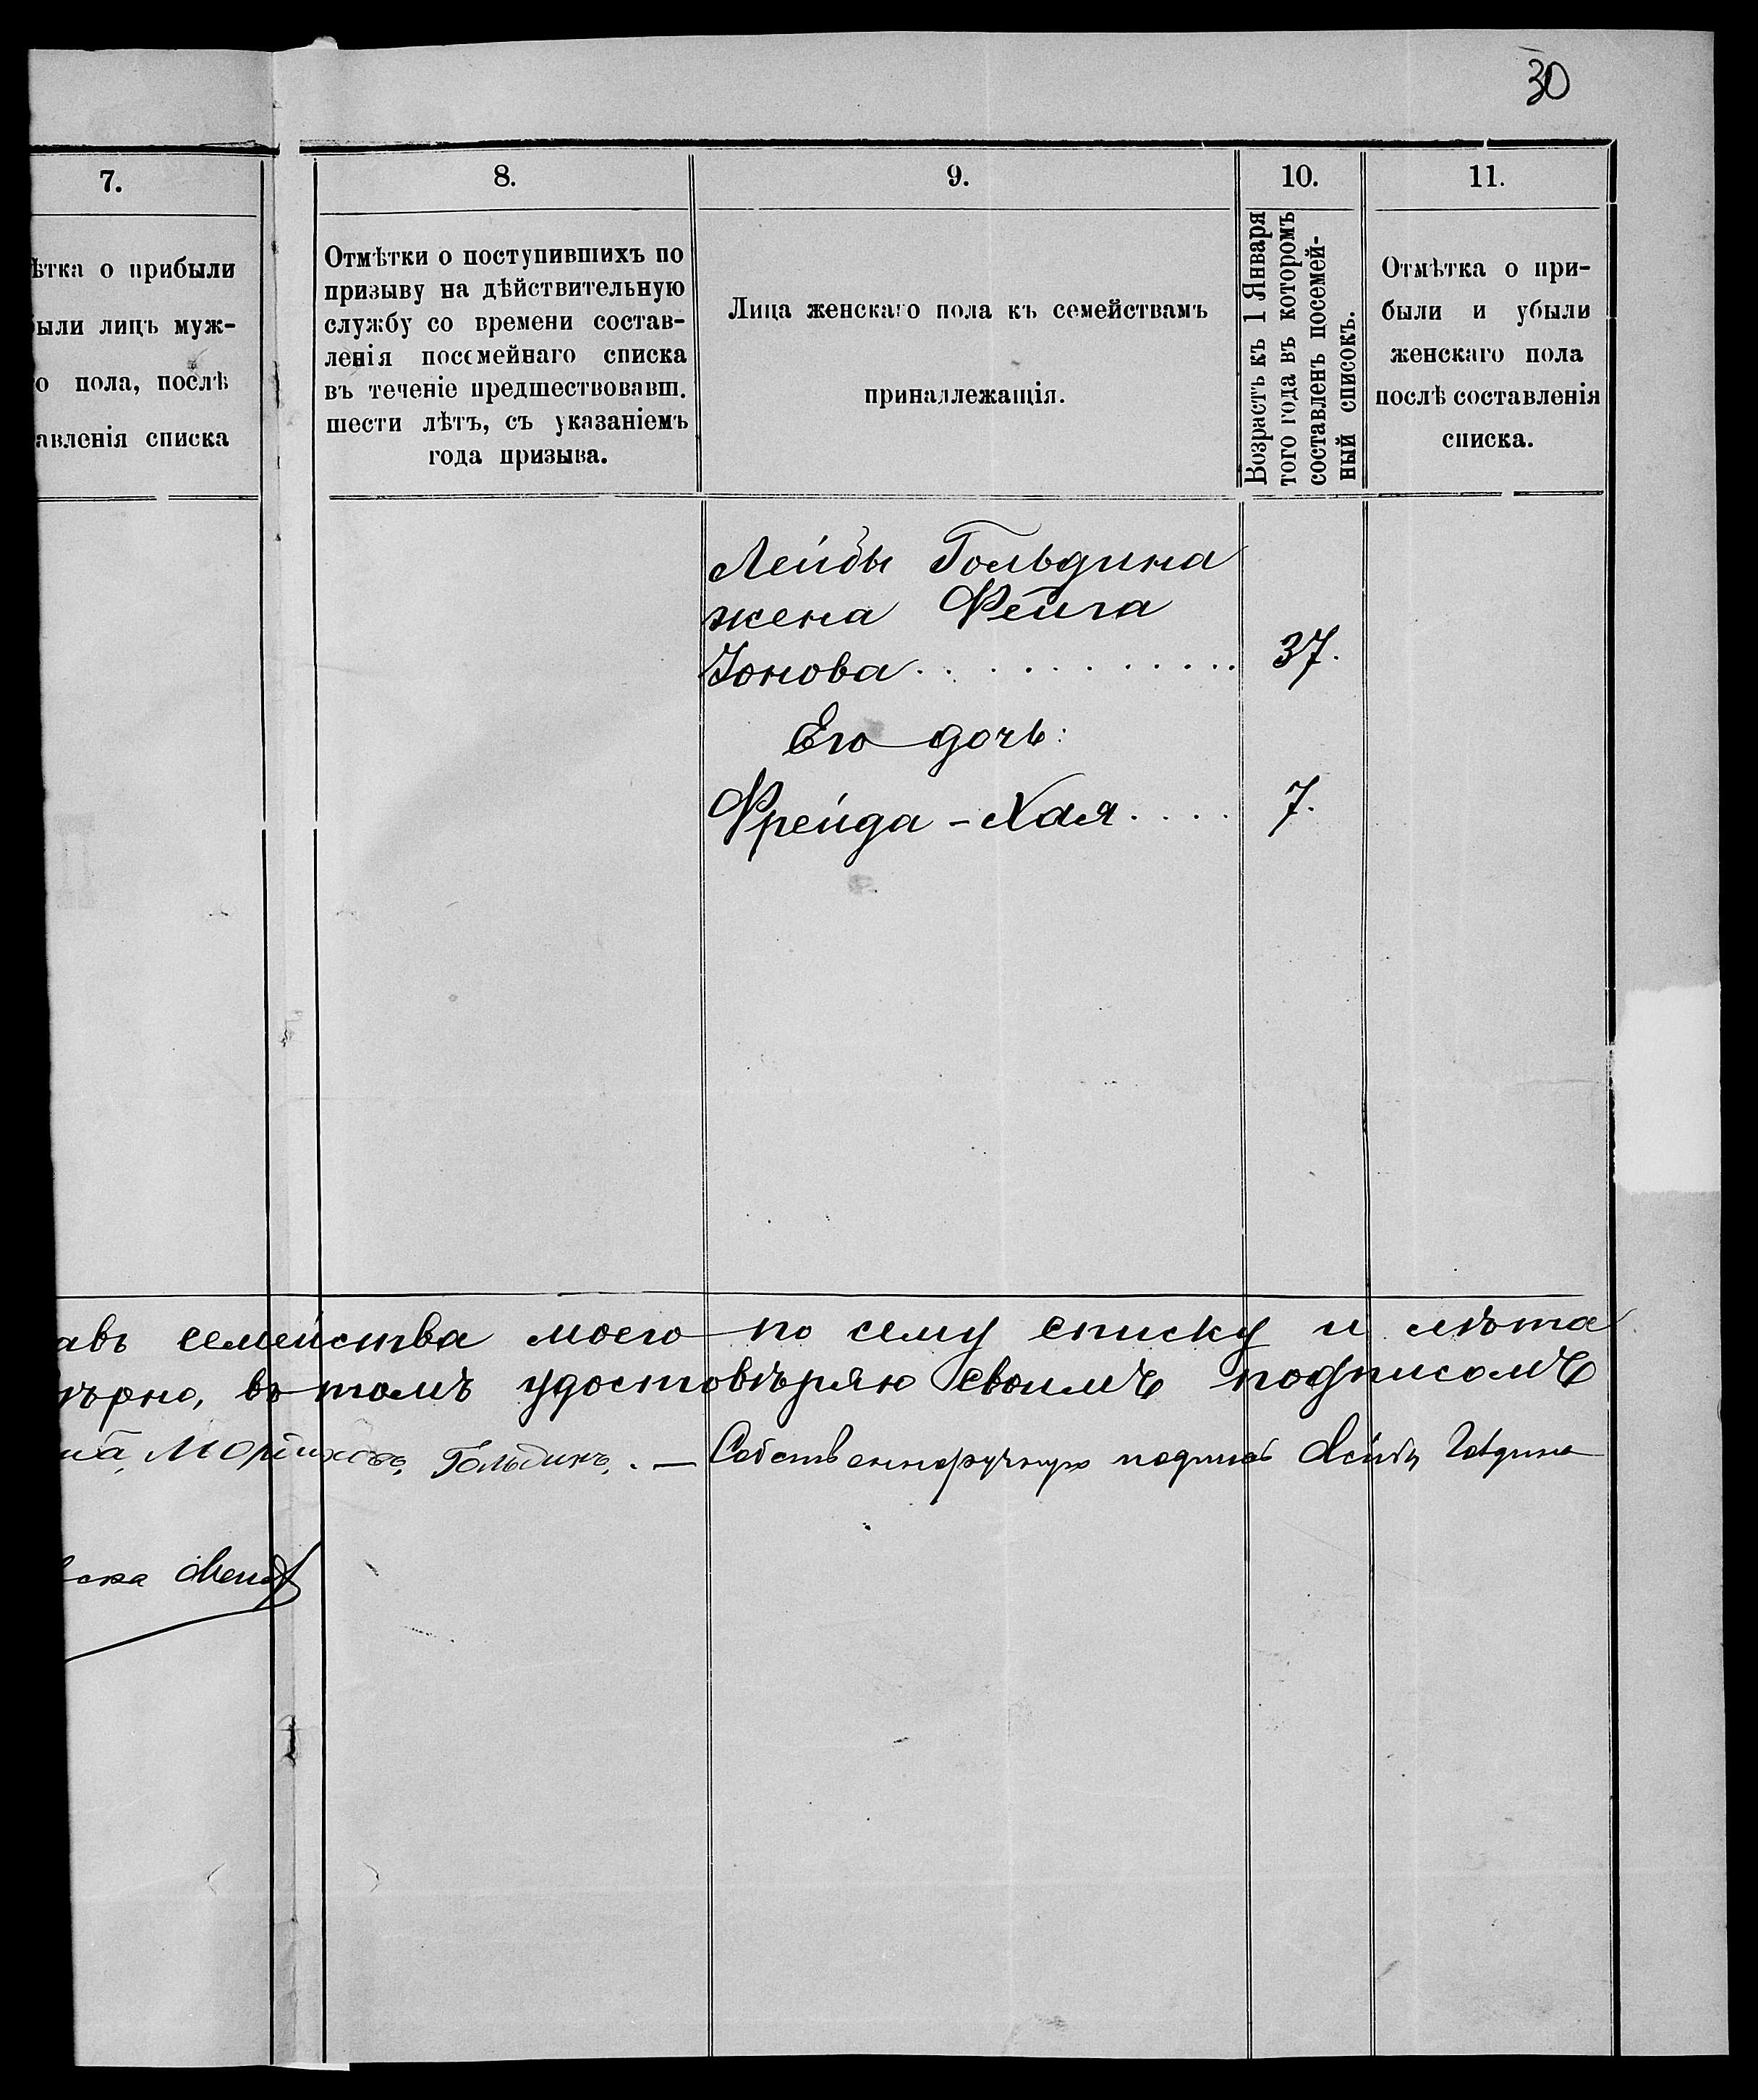 30
7.
ѣтка о прибыли
были лицъ муж-
о пола, послѣ
авленія списка
8.
Отмѣтки о поступившихъ по
призыву на дѣйствительную
службу со времени состав-
ленія посемейнаго списка
въ теченіе предшествовавш.
шести лѣтъ, съ указаніемъ
года призыва.
9.
Лица женскаго пола къ семействамъ
принадлежащія.
10.
Возрасть къ 1 Января
того года въ которомъ
составленъ посемей-
ный списокъ.
11.
Отмѣтка о при-
были и убыли
женскаго пола
послѣ составленія
списка.
Лейбы Гольдина
жена Фейга
Іонова . . . . . . . . . . 37.
Его дочь:
Фрейда - Хая . . . . 7.
авъ семейства моего по сему списку и лѣта
ѣрно, въ томъ удостовѣряю своимъ подписомъ
Гольдинъ. — Собственноручную подпись Лейбы Гольдина